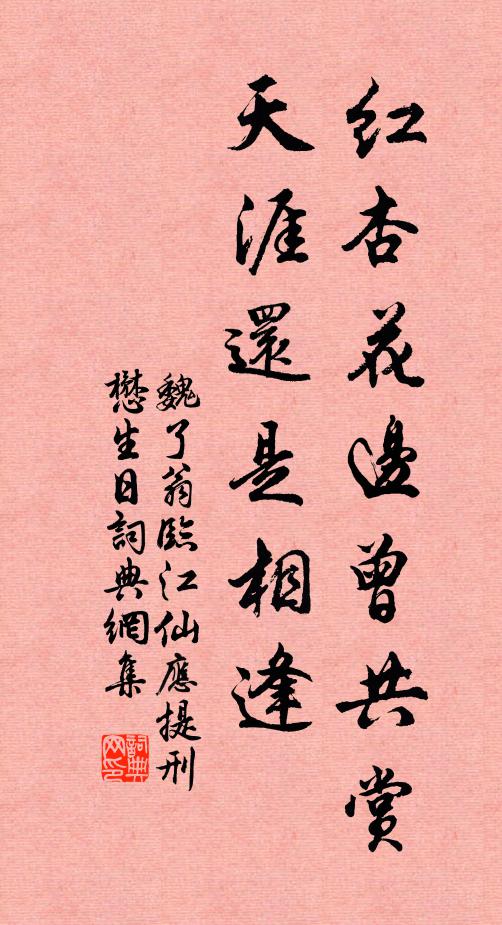 紅杏花邊曾共賞
天涯還是相逢
魏了翁臨江仙應提刑
懋生日詞典網集
詞典
网印